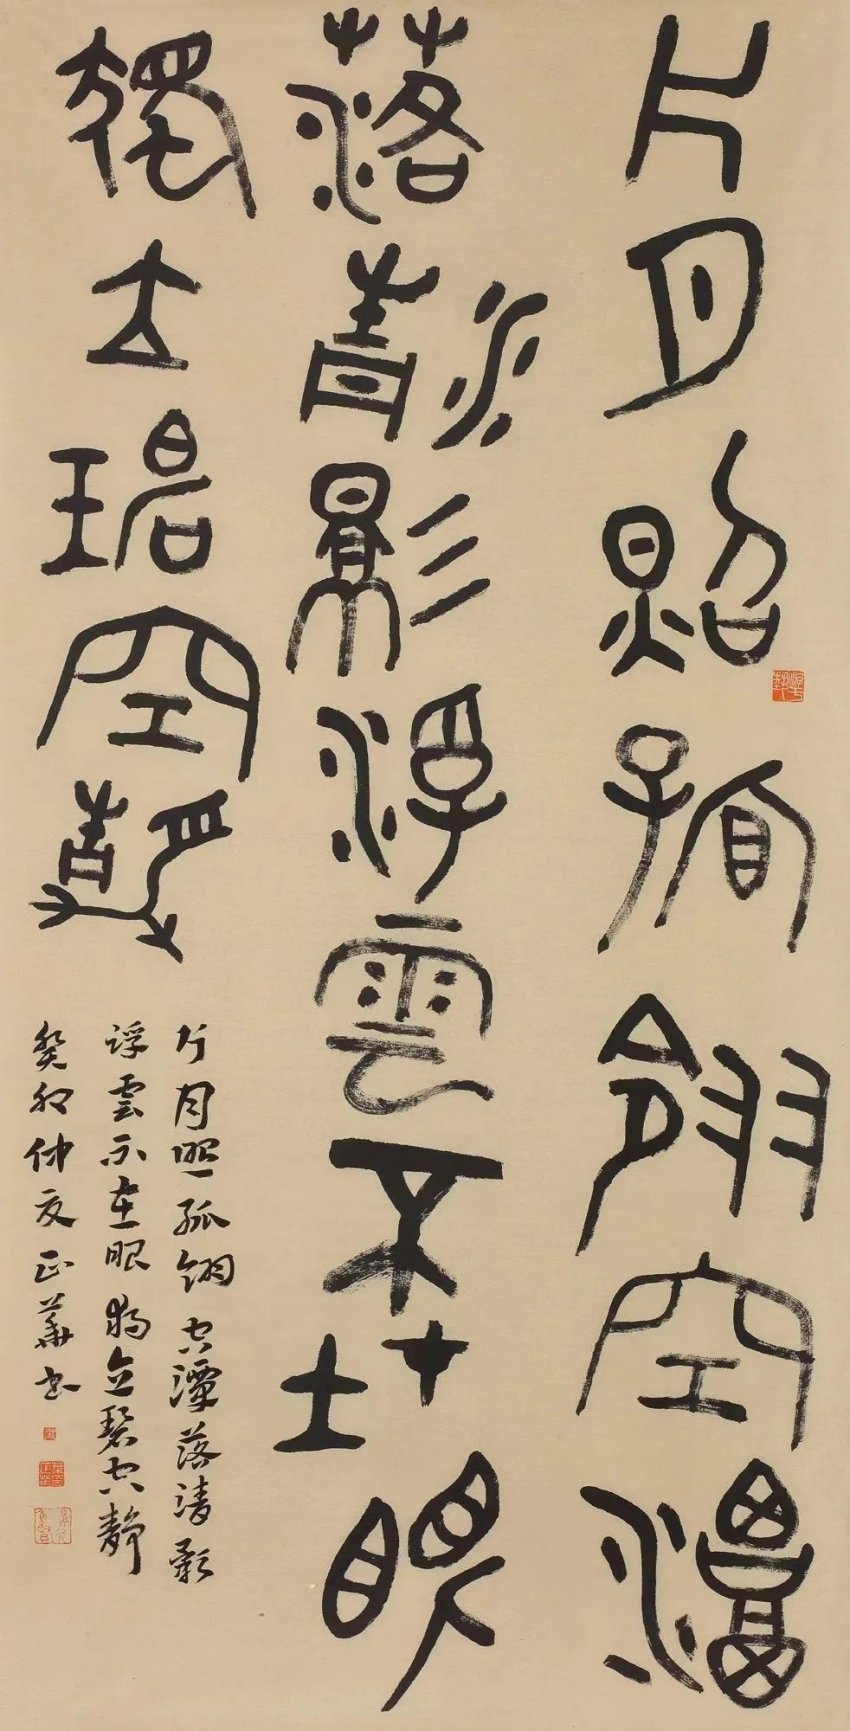 片月照孤翎空潭
落清影浮雲不在眼
獨立碧空靜
片月照孤翎空潭落清影
浮雲不在眼獨立碧空靜
癸卯仲夏正華書